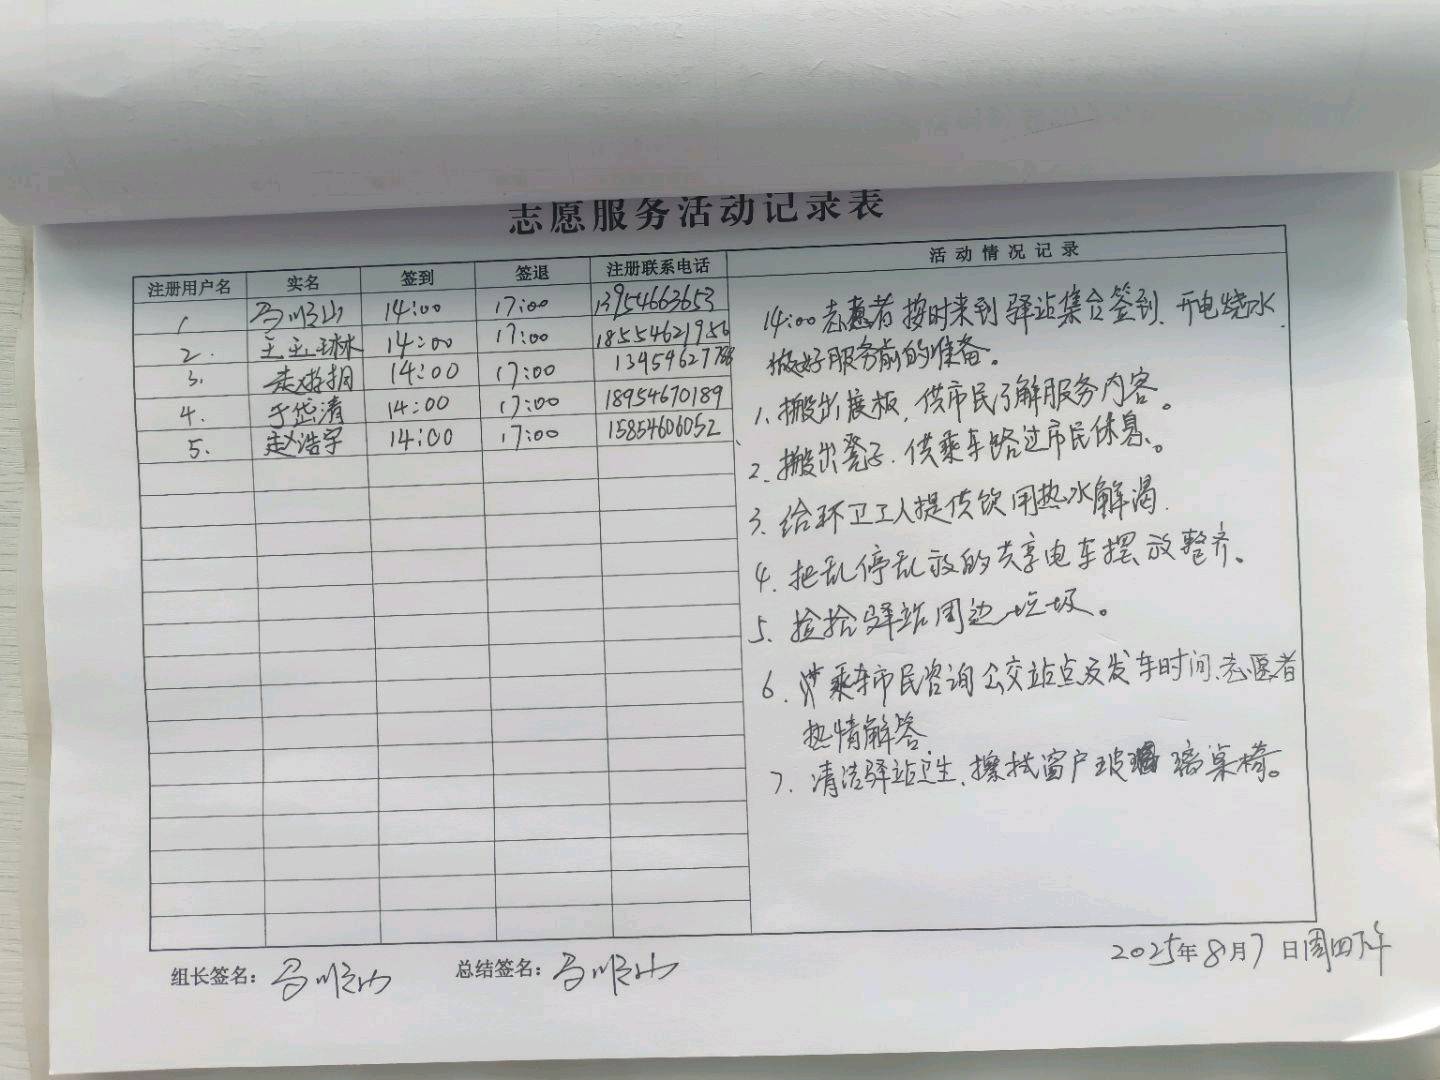 志愿服务活动记录表
注册用户名 实名 签到 签退 注册联系电话 活动情况记录
1 马顺山 14:00 17:00 13954663653
2. 王玉琳 14:00 17:00 18554621956
3. 14:00 17:00
4. 于岱清 14:00 17:00 18954670189
5. 赵浩宇 14:00 17:00 15854606052
14:00志愿者按时来到驿站集合签到、开电烧水
做好服务前的准备。
1、搬出展板,供市民了解服务内容。
2、搬出凳子.供乘车路过市民休息。
3、给环卫工人提供饮用热水解渴.
4、把乱停乱放的共享电车摆放整齐。
5、捡拾驿站周边垃圾。
6、乘车市民咨询公交站点及发车时间、志愿者
热情解答
7、清洁驿站卫生、擦拭窗户玻璃桌椅。
组长签名:马顺山 总结签名:马顺山 2025年8月7日周四下午